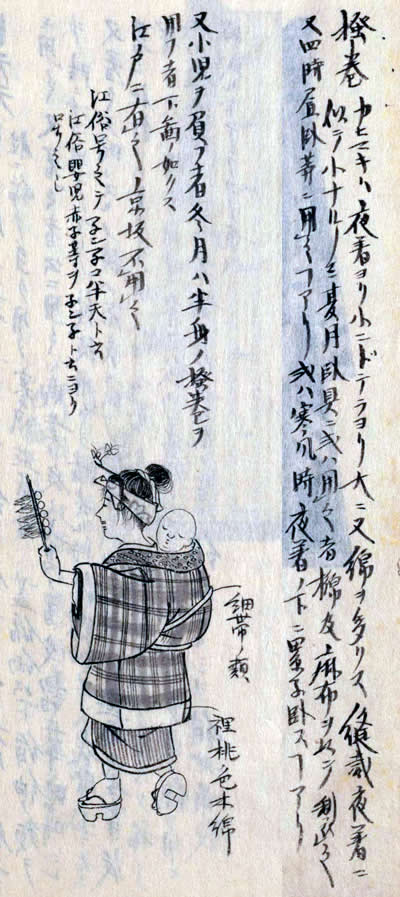 掻巻 カヒマキハ夜着ヨリ小ニドテラヨリ大ニ又綿ヲ多クス 縫裁夜着ニ
似テ小ナルノミ夏月臥具ニ或ハ用之者 及麻布ヲ以テ制
又四時昼臥等ニ用之ヿアリ或ハ寒風時夜着ノ下ニ累子臥スヿアリ
又小児ヲ負フ者冬月ハ半身ノ掻巻ヲ
用フ者下図ノ如クス
江戸ニ有之ノミ京坂不用之
江俗号之テ子ン子コ半天ト云
江俗嬰児赤子等ヲ子ン子ト云ニヨリ
号之
細帯ノ類
裡桃色木綿